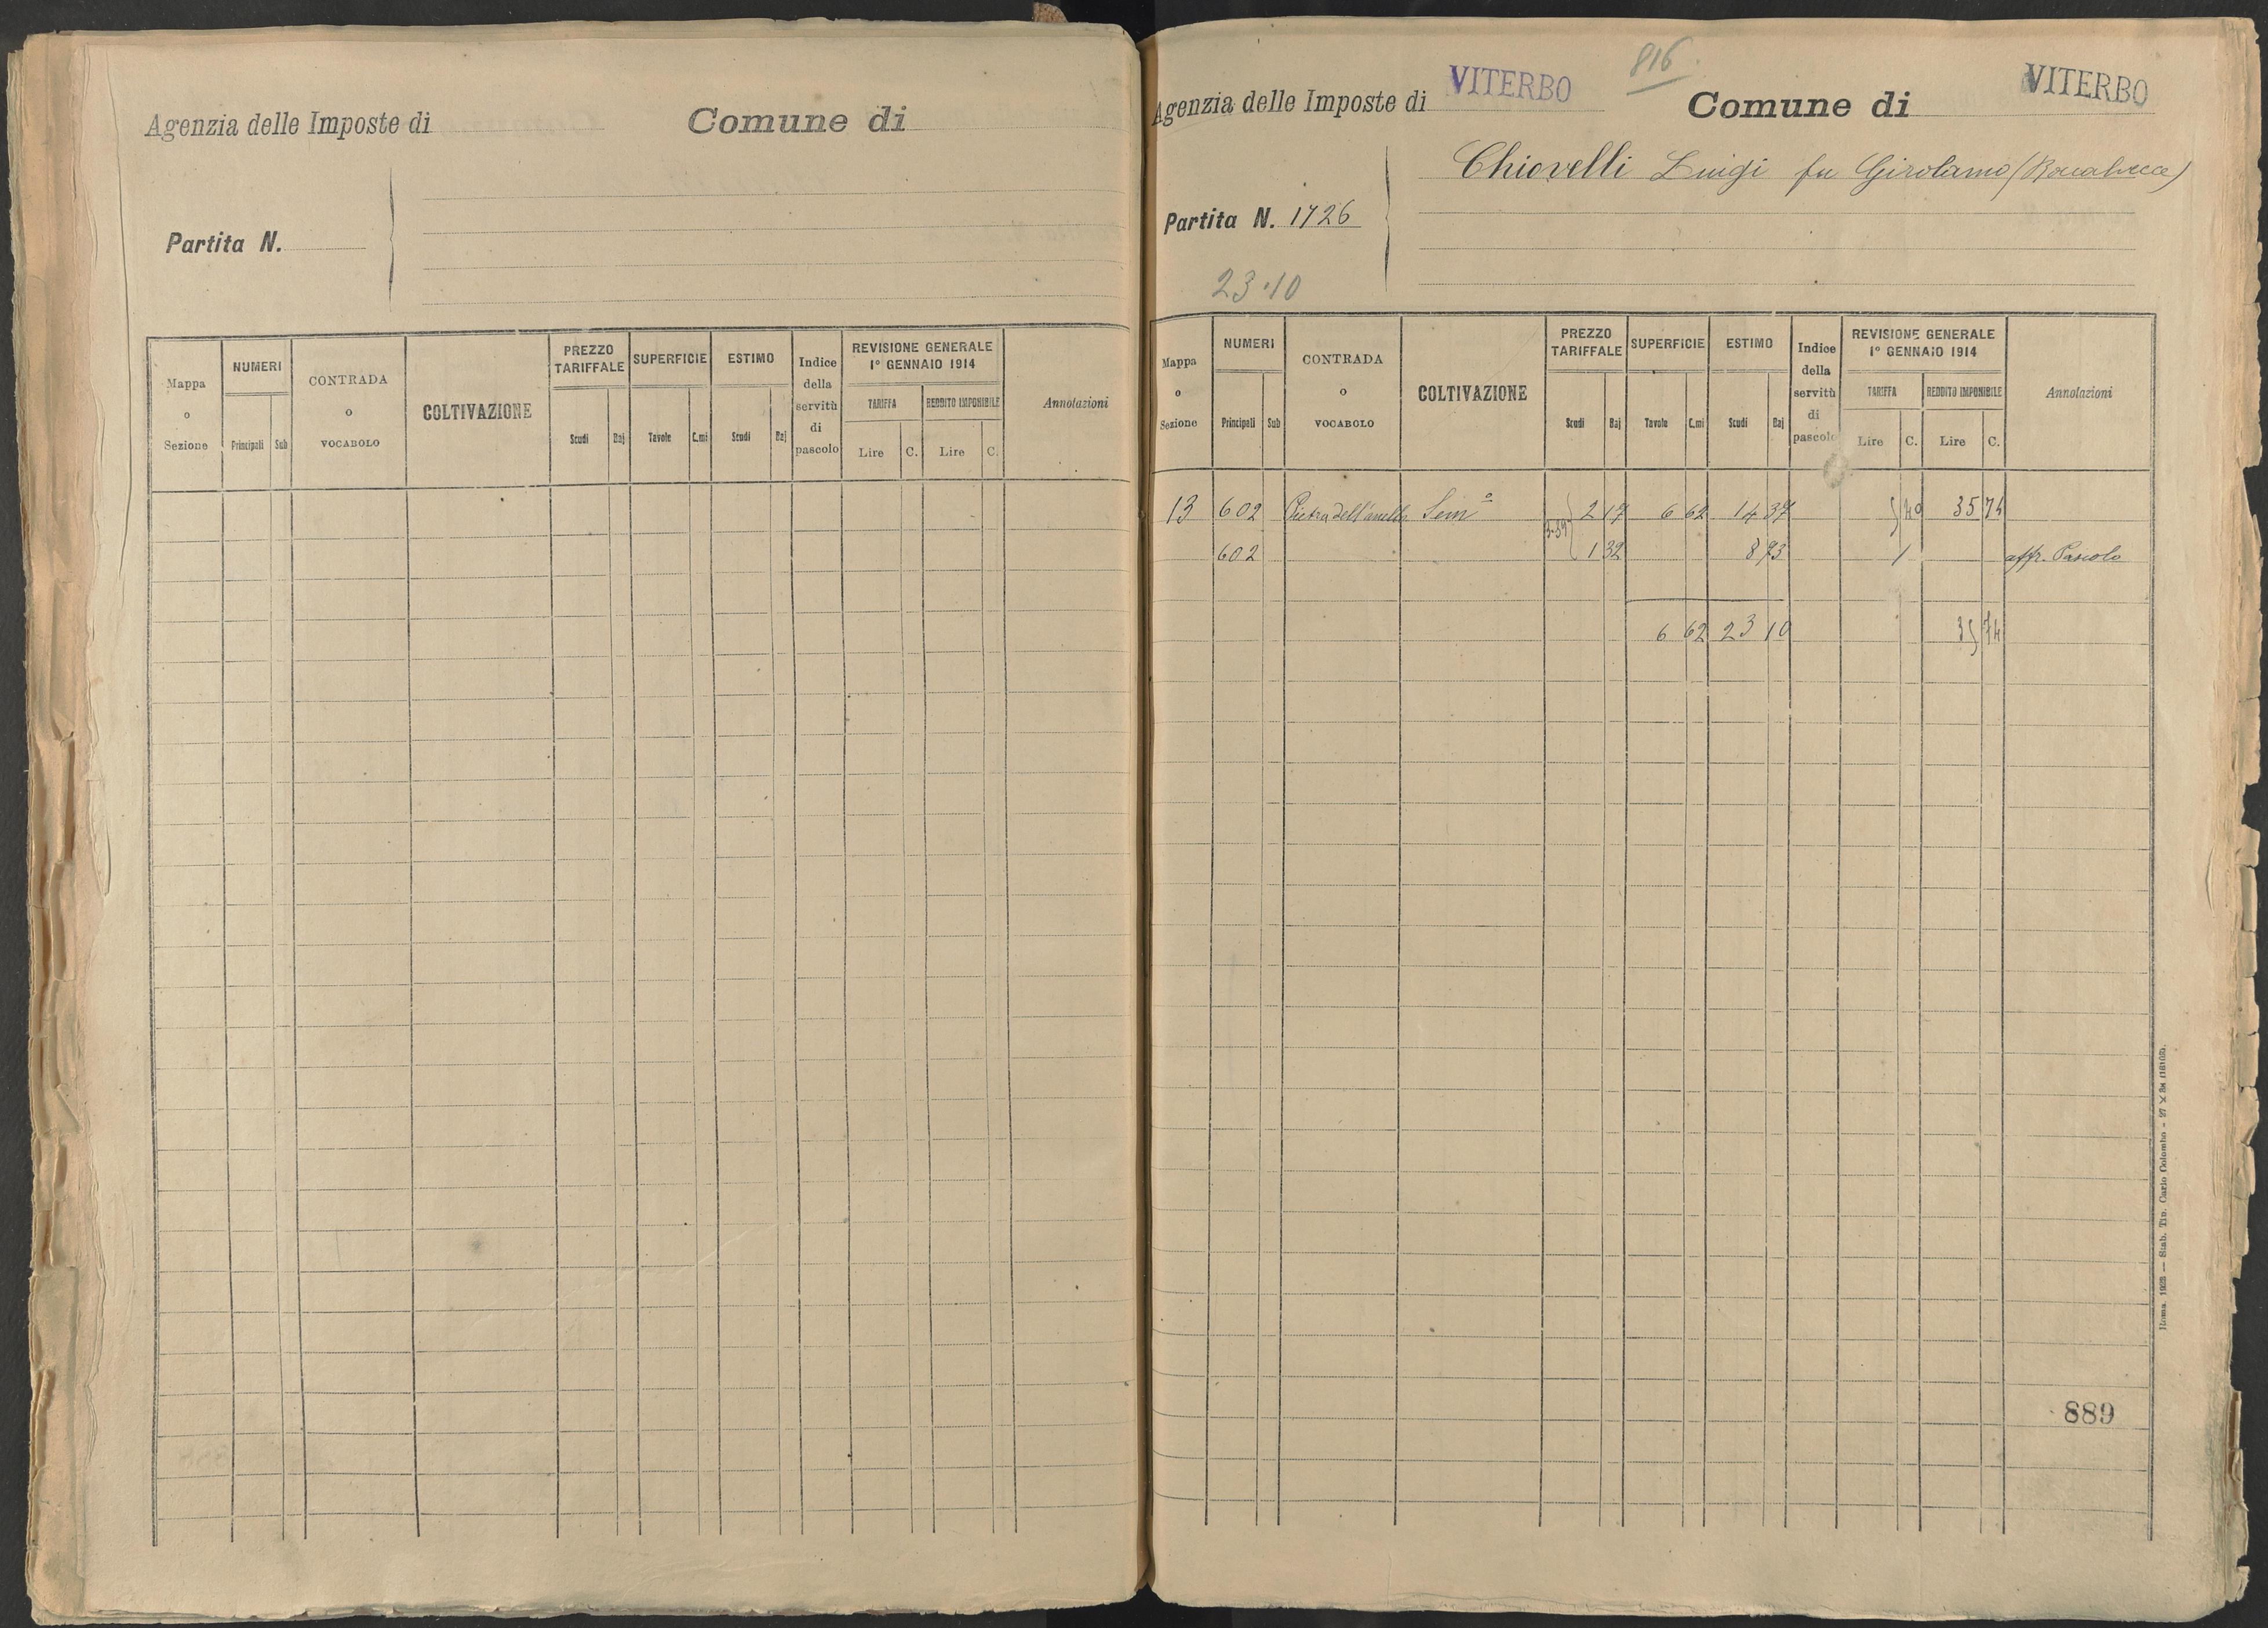 Agenzia delle Imposte di Comune di
Partita N.
Mappa o Sezione NUMERI Principali Sub CONTRADA o VOCABOLO COLTIVAZIONE PREZZO TARIFFALE Scudi Baj SUPERFICIE Tavole C.mi ESTIMO Scudi Baj Indice della servitù di pascolo REVISIONE GENERALE 1° GENNAIO 1914 TARIFFA Lire C. REDDITO IMPONIBILE Lire C. Annotazioni
816
Agenzia delle Imposte di VITERBO Comune di VITERBO
Chiovelli Luigi fu Girolamo
Partita N. 1726
23.10
Mappa o Sezione NUMERI Principali Sub CONTRADA o VOCABOLO COLTIVAZIONE PREZZO TARIFFALE Scudi Baj SUPERFICIE Tavole C.mi ESTIMO Scudi Baj Indice della servitù di pascolo REVISIONE GENERALE 1° GENNAIO 1914 TARIFFA Lire C. REDDITO IMPONIBILE Lire C. Annotazioni
13 602 Pietra dell'anello Sem° 2 17 6 62 14 37 35 74
602 1 32 8 73 affr. Pascolo
6 62 23 10 35 74
889